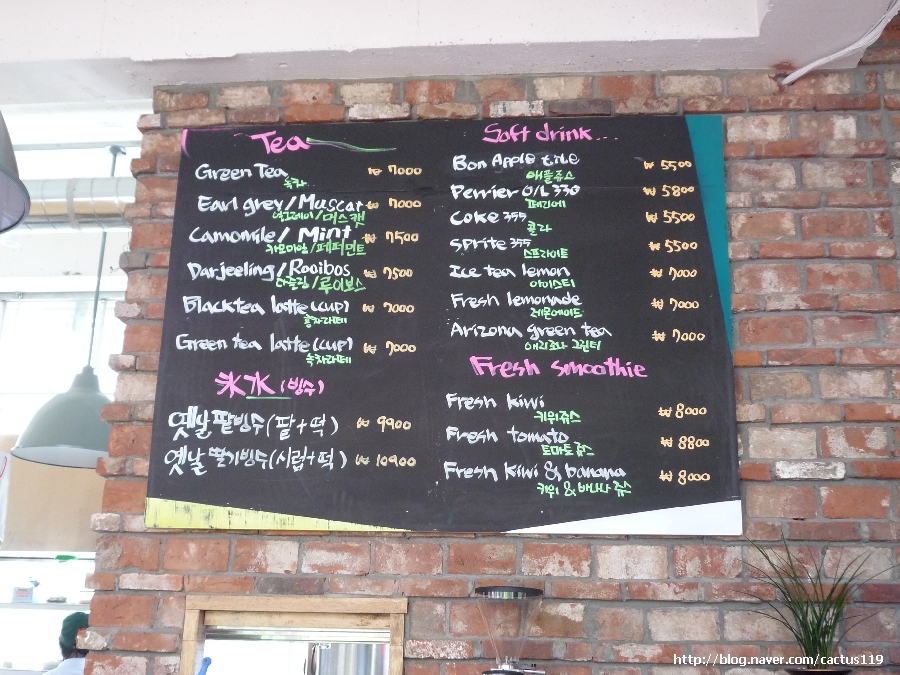 Tea
Green Tea ₩ 7000
녹차
Earl grey/Muscat ₩ 7000
얼그레이/머스캣
Camomile/Mint ₩ 7500
카모마일/페퍼민트
Darjeeling/Rooibos ₩ 7500
다즐링/루이보스
Black tea latte (cup) ₩ 7000
홍차라떼
Green tea latte (cup) ₩ 7000
녹차라떼
氷水 (빙수)
옛날 팥빙수 (팥+떡) ₩ 9900
옛날 딸기빙수 (시럽+떡) ₩ 10900
Soft drink...
Bon Apple ₩ 5500
애플쥬스
Perrier O/L 330 ₩ 5800
페리에
Coke 355 ₩ 5500
콜라
Sprite 355 ₩ 5500
스프라이트
Ice tea lemon ₩ 7000
아이스티
Fresh lemonade ₩ 7000
레몬에이드
Arizona green tea ₩ 7000
애리조나 그린티
Fresh smoothie
Fresh kiwi ₩ 8000
키위쥬스
Fresh tomato ₩ 8800
토마토 쥬스
Fresh kiwi & banana ₩ 8000
키위 & 바나나 쥬스
http://blog.naver.com/cactus119